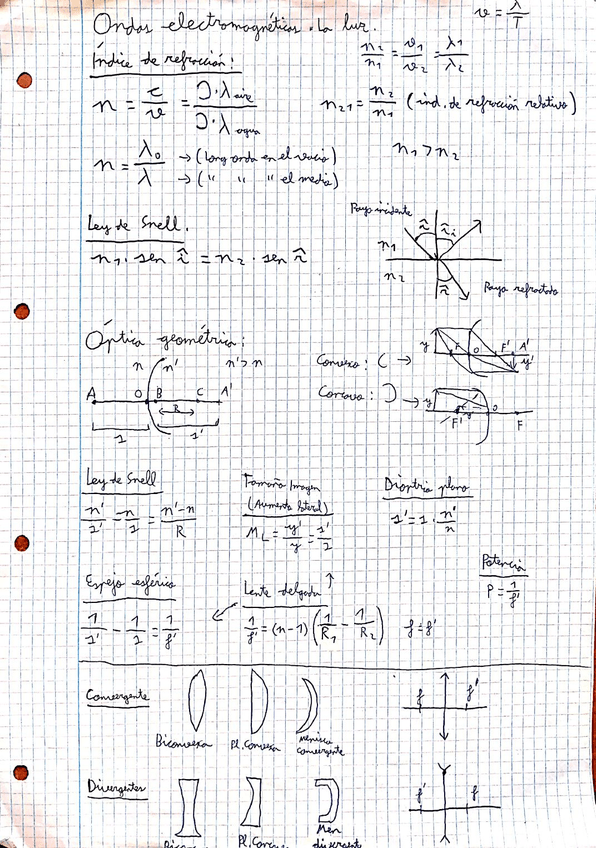 Ondas electromagnéticas. La luz.
v = λ/T
Índice de refracción:
n2/n1 = v1/v2 = λ1/λ2
n = c/v = Ɔ·λ aire / Ɔ·λ agua
n21 = n2/n1 (ind. de refracción relativo)
n = λ0/λ → (long onda en el vacío)
→ (" " " el medio)
n1 > n2
Ley de Snell.
n1 · sen î = n2 · sen r̂
Rayo incidente
î r̂i
n1
n2
r̂
Rayo refractado
Óptica geométrica:
n n' n' > n
A O B C A'
R
1 1'
Convexo: ( →
y F O F' A' y'
Concavo: ) →
y F' y' O F
Ley de Snell
n'/1' - n/1 = n'-n/R
Tamaño Imagen
(Aumento lateral)
ML = y'/y = 1'/1
Dioptrio plano
1' = 1 · n'/n
Potencia
P = 1/f'
Espejo esférico
1/1' - 1/1 = 1/f'
Lente delgada
1/f' = (n-1) (1/R1 - 1/R2)
Convergente
Biconvexa
Pl. Convexa
Menisco
convergente
f f'
Divergentes
Pl. Conc
Men
divergent
f' f